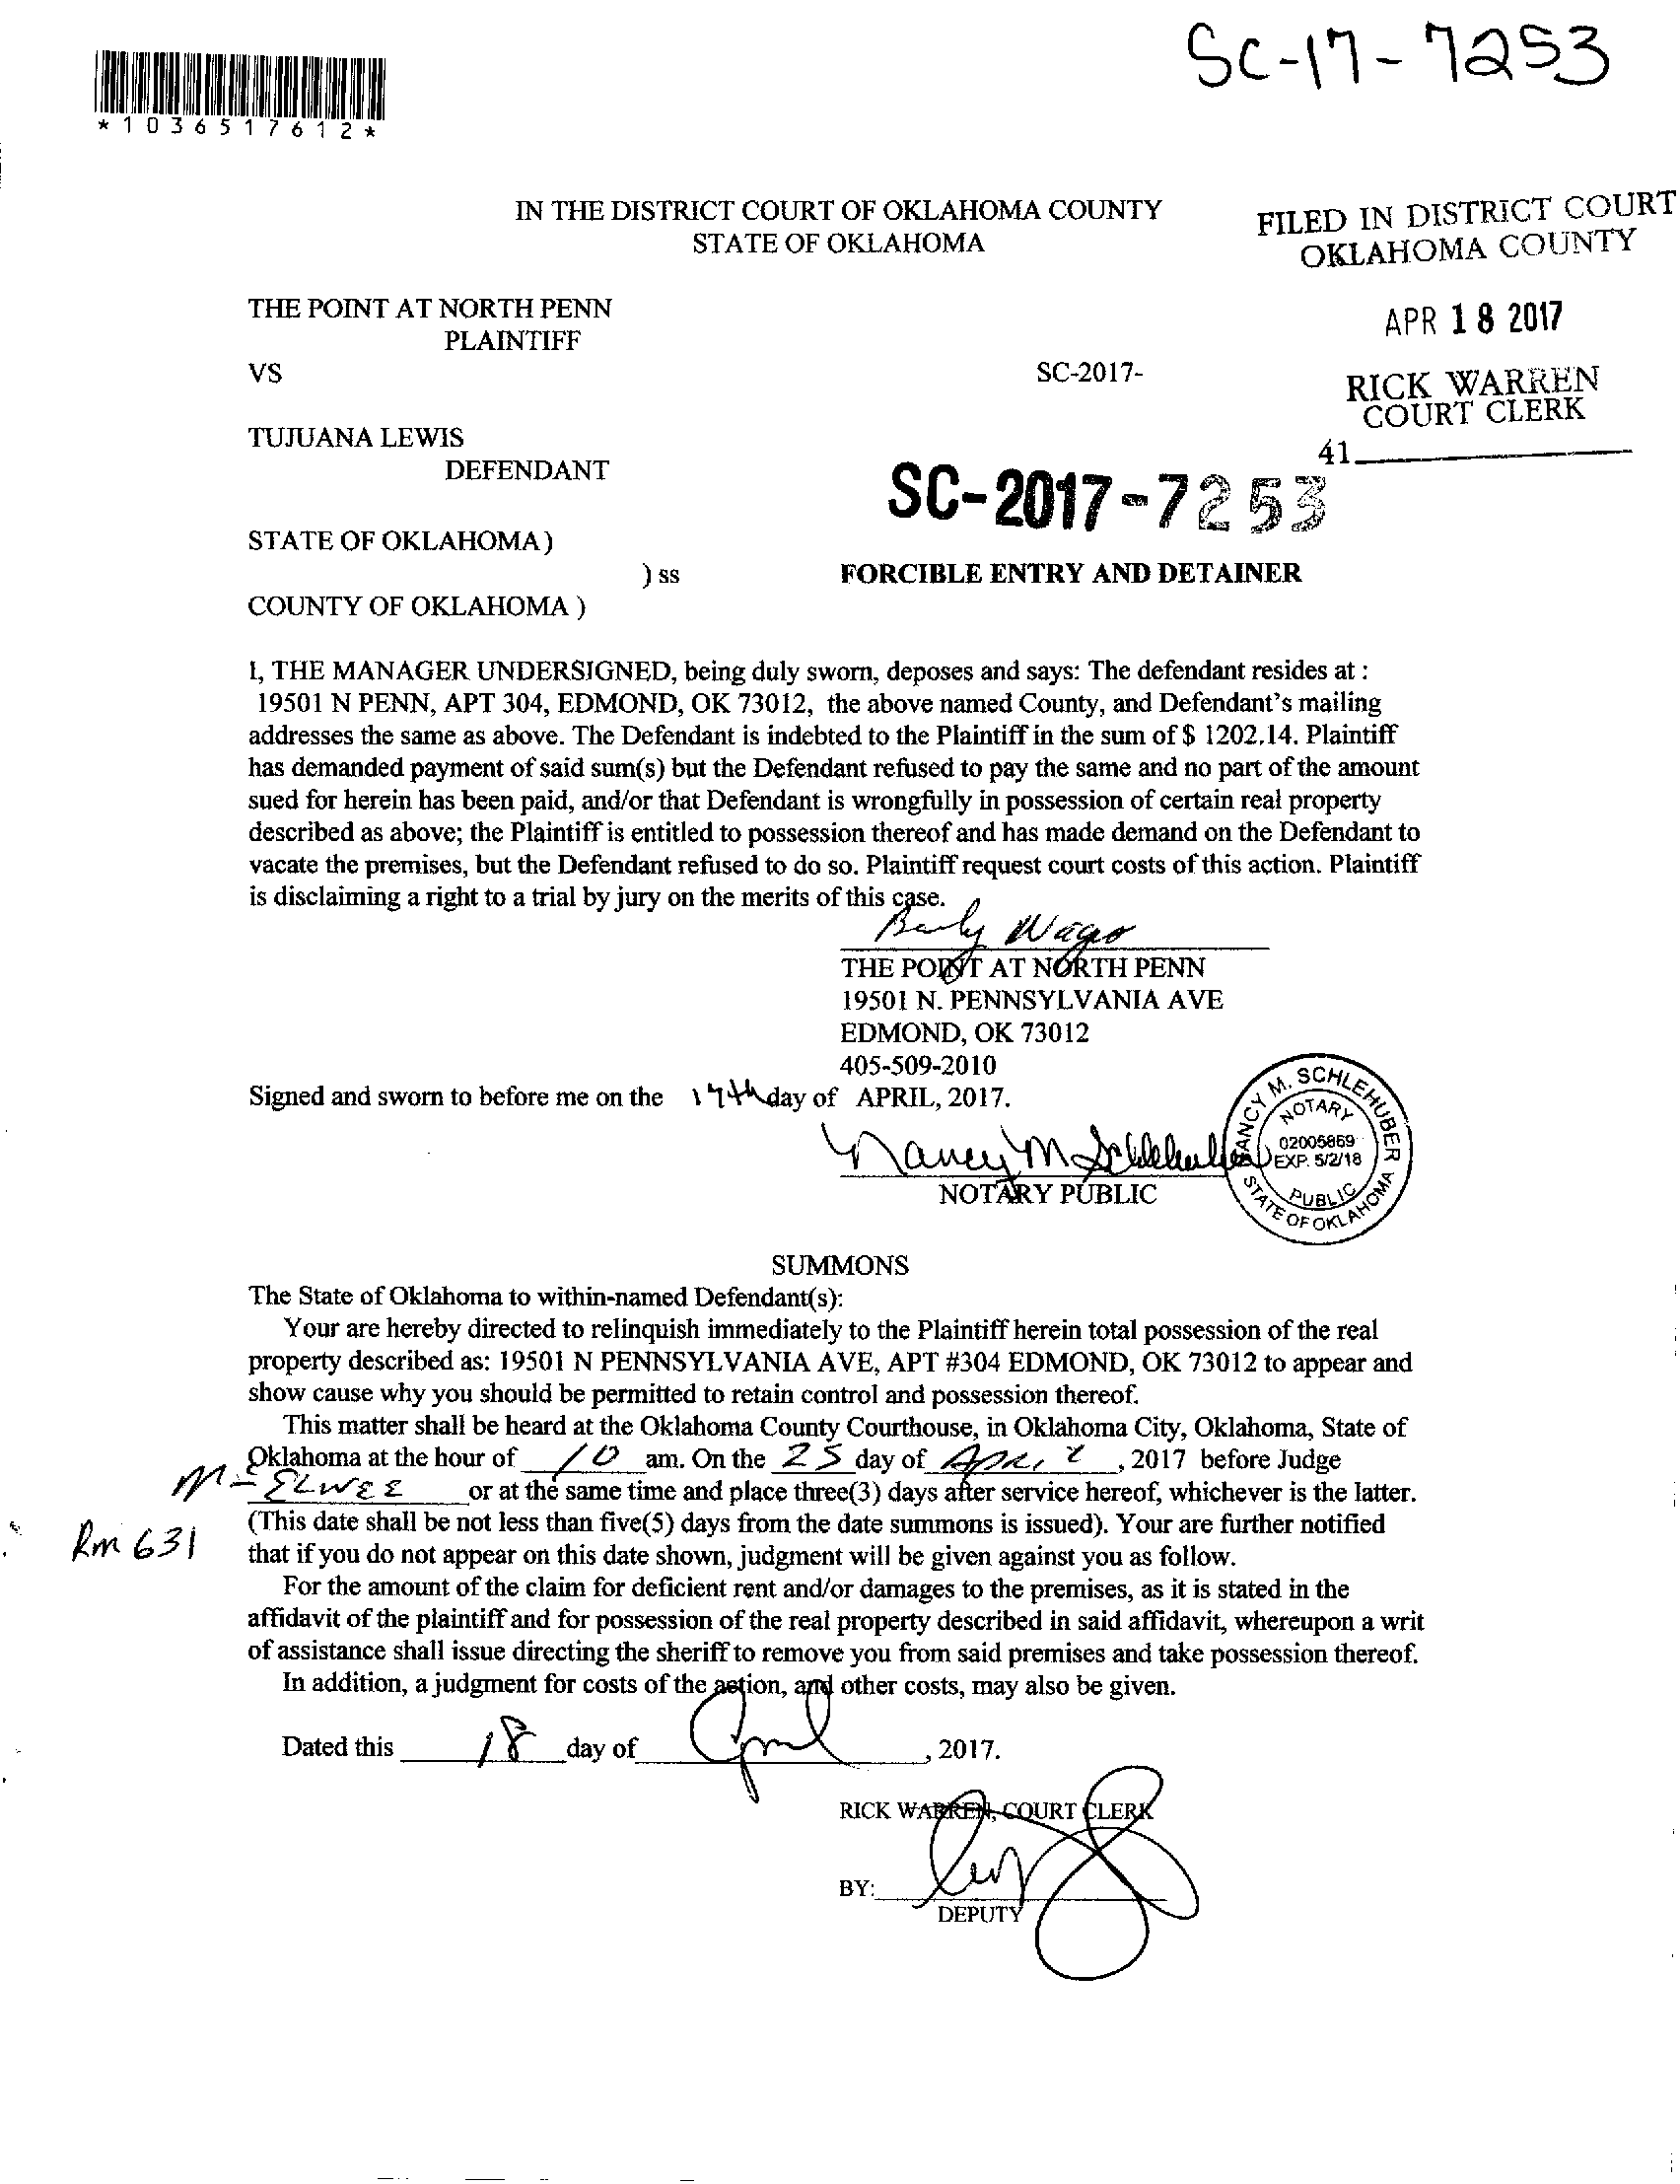 SC-17-7253
*1036517612*
IN THE DISTRICT COURT OF OKLAHOMA COUNTY
STATE OF OKLAHOMA
FILED IN DISTRICT COURT
OKLAHOMA COUNTY
THE POINT AT NORTH PENN
PLAINTIFF
APR 18 2017
VS
SC-2017-
RICK WARREN
COURT CLERK
TUJUANA LEWIS
41
DEFENDANT
SC-2017-7253
STATE OF OKLAHOMA)
) ss
FORCIBLE ENTRY AND DETAINER
COUNTY OF OKLAHOMA )
I, THE MANAGER UNDERSIGNED, being duly sworn, deposes and says: The defendant resides at :
19501 N PENN, APT 304, EDMOND, OK 73012, the above named County, and Defendant's mailing
addresses the same as above. The Defendant is indebted to the Plaintiff in the sum of $ 1202.14. Plaintiff
has demanded payment of said sum(s) but the Defendant refused to pay the same and no part of the amount
sued for herein has been paid, and/or that Defendant is wrongfully in possession of certain real property
described as above; the Plaintiff is entitled to possession thereof and has made demand on the Defendant to
vacate the premises, but the Defendant refused to do so. Plaintiff request court costs of this action. Plaintiff
is disclaiming a right to a trial by jury on the merits of this case.
THE POINT AT NORTH PENN
19501 N. PENNSYLVANIA AVE
EDMOND, OK 73012
405-509-2010
Signed and sworn to before me on the 17th day of APRIL, 2017.
Nancy M Schlehuber
NOTARY PUBLIC
NANCY M. SCHLEHUBER
NOTARY
02005869
EXP. 5/2/18
PUBLIC
STATE OF OKLAHOMA
SUMMONS
The State of Oklahoma to within-named Defendant(s):
Your are hereby directed to relinquish immediately to the Plaintiff herein total possession of the real
property described as: 19501 N PENNSYLVANIA AVE, APT #304 EDMOND, OK 73012 to appear and
show cause why you should be permitted to retain control and possession thereof.
This matter shall be heard at the Oklahoma County Courthouse, in Oklahoma City, Oklahoma, State of
Oklahoma at the hour of 10 am. On the 25 day of April , 2017 before Judge
McElwee or at the same time and place three(3) days after service hereof, whichever is the latter.
Rm 631
(This date shall be not less than five(5) days from the date summons is issued). Your are further notified
that if you do not appear on this date shown, judgment will be given against you as follow.
For the amount of the claim for deficient rent and/or damages to the premises, as it is stated in the
affidavit of the plaintiff and for possession of the real property described in said affidavit, whereupon a writ
of assistance shall issue directing the sheriff to remove you from said premises and take possession thereof.
In addition, a judgment for costs of the action, and other costs, may also be given.
Dated this 18 day of April , 2017.
RICK WARREN, COURT CLERK
BY:
DEPUTY